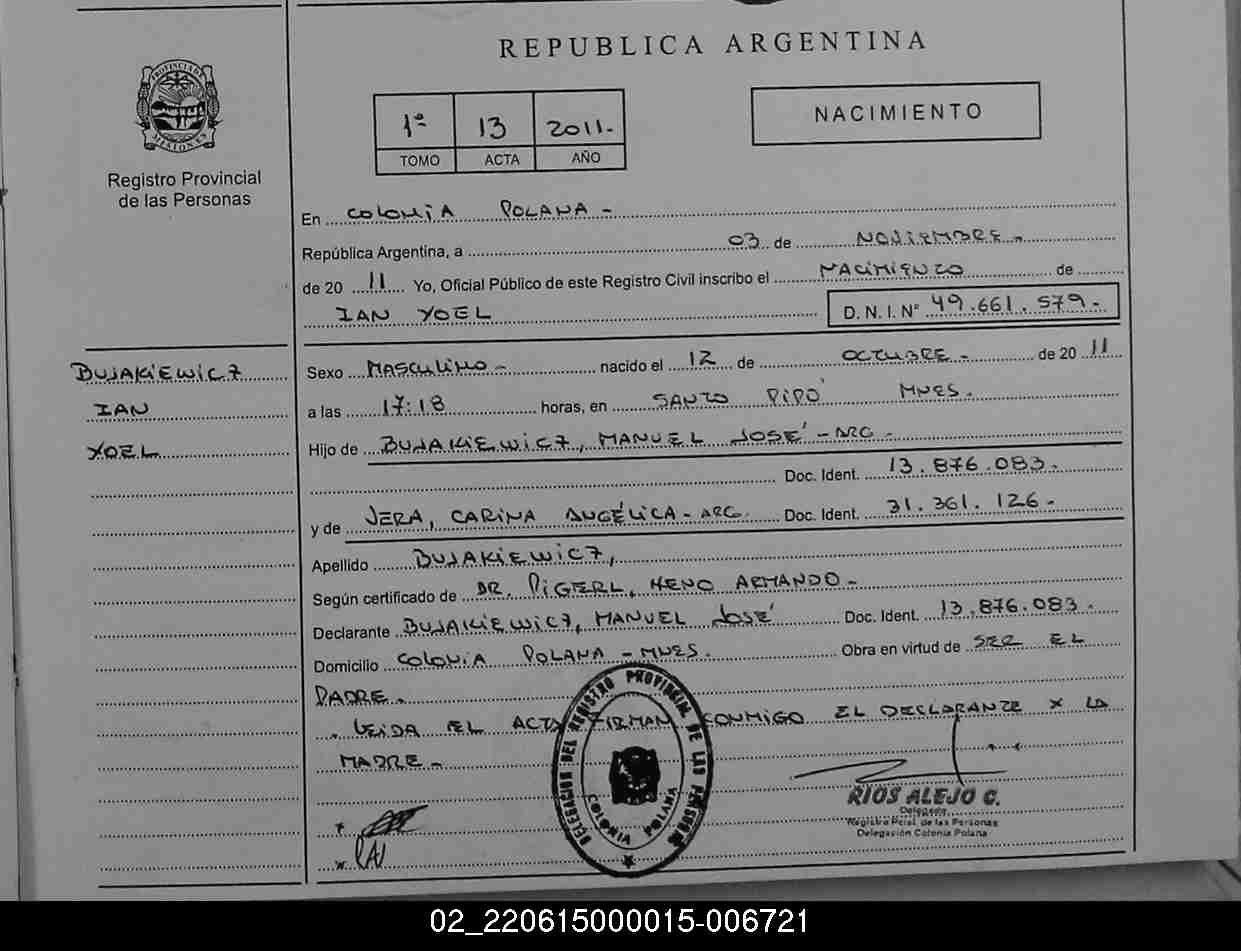 REPUBLICA ARGENTINA
PROVINCIA DE MISIONES
Registro Provincial
de las Personas
1ª 13 2011.-
TOMO ACTA AÑO
NACIMIENTO
En COLONIA POLANA -
República Argentina, a 03 de NOVIEMBRE -
de 20 11 Yo, Oficial Público de este Registro Civil inscribo el NACIMIENTO de
IAN YOEL D. N. I. N° 49.661.579.-
BUJAKIEWICZ
IAN
YOEL
Sexo MASCULINO - nacido el 12 de OCTUBRE - de 20 11
a las 17:18 horas, en SANTO PIPÓ MNES.
Hijo de BUJAKIEWICZ, MANUEL JOSÉ - ARG -
Doc. Ident. 13.876.083.
y de JERA, CARINA ANGÉLICA - ARG. Doc. Ident. 31.361.126-
Apellido BUJAKIEWICZ,
Según certificado de DR. PIGERL, HENO ARMANDO -
Declarante BUJAKIEWICZ, MANUEL JOSÉ Doc. Ident. 13.876.083.
Domicilio COLONIA POLANA - MNES. Obra en virtud de SER EL
PADRE.
. LEIDA EL ACTA FIRMAN CONMIGO EL DECLARANTE Y LA
MADRE -
DELEGACION DEL REGISTRO PROVINCIAL DE LAS PERSONAS
COLONIA POLANA
RIOS ALEJO G.
Delegado
Registro Pcial. de las Personas
Delegación Colonia Polana
02_220615000015-006721